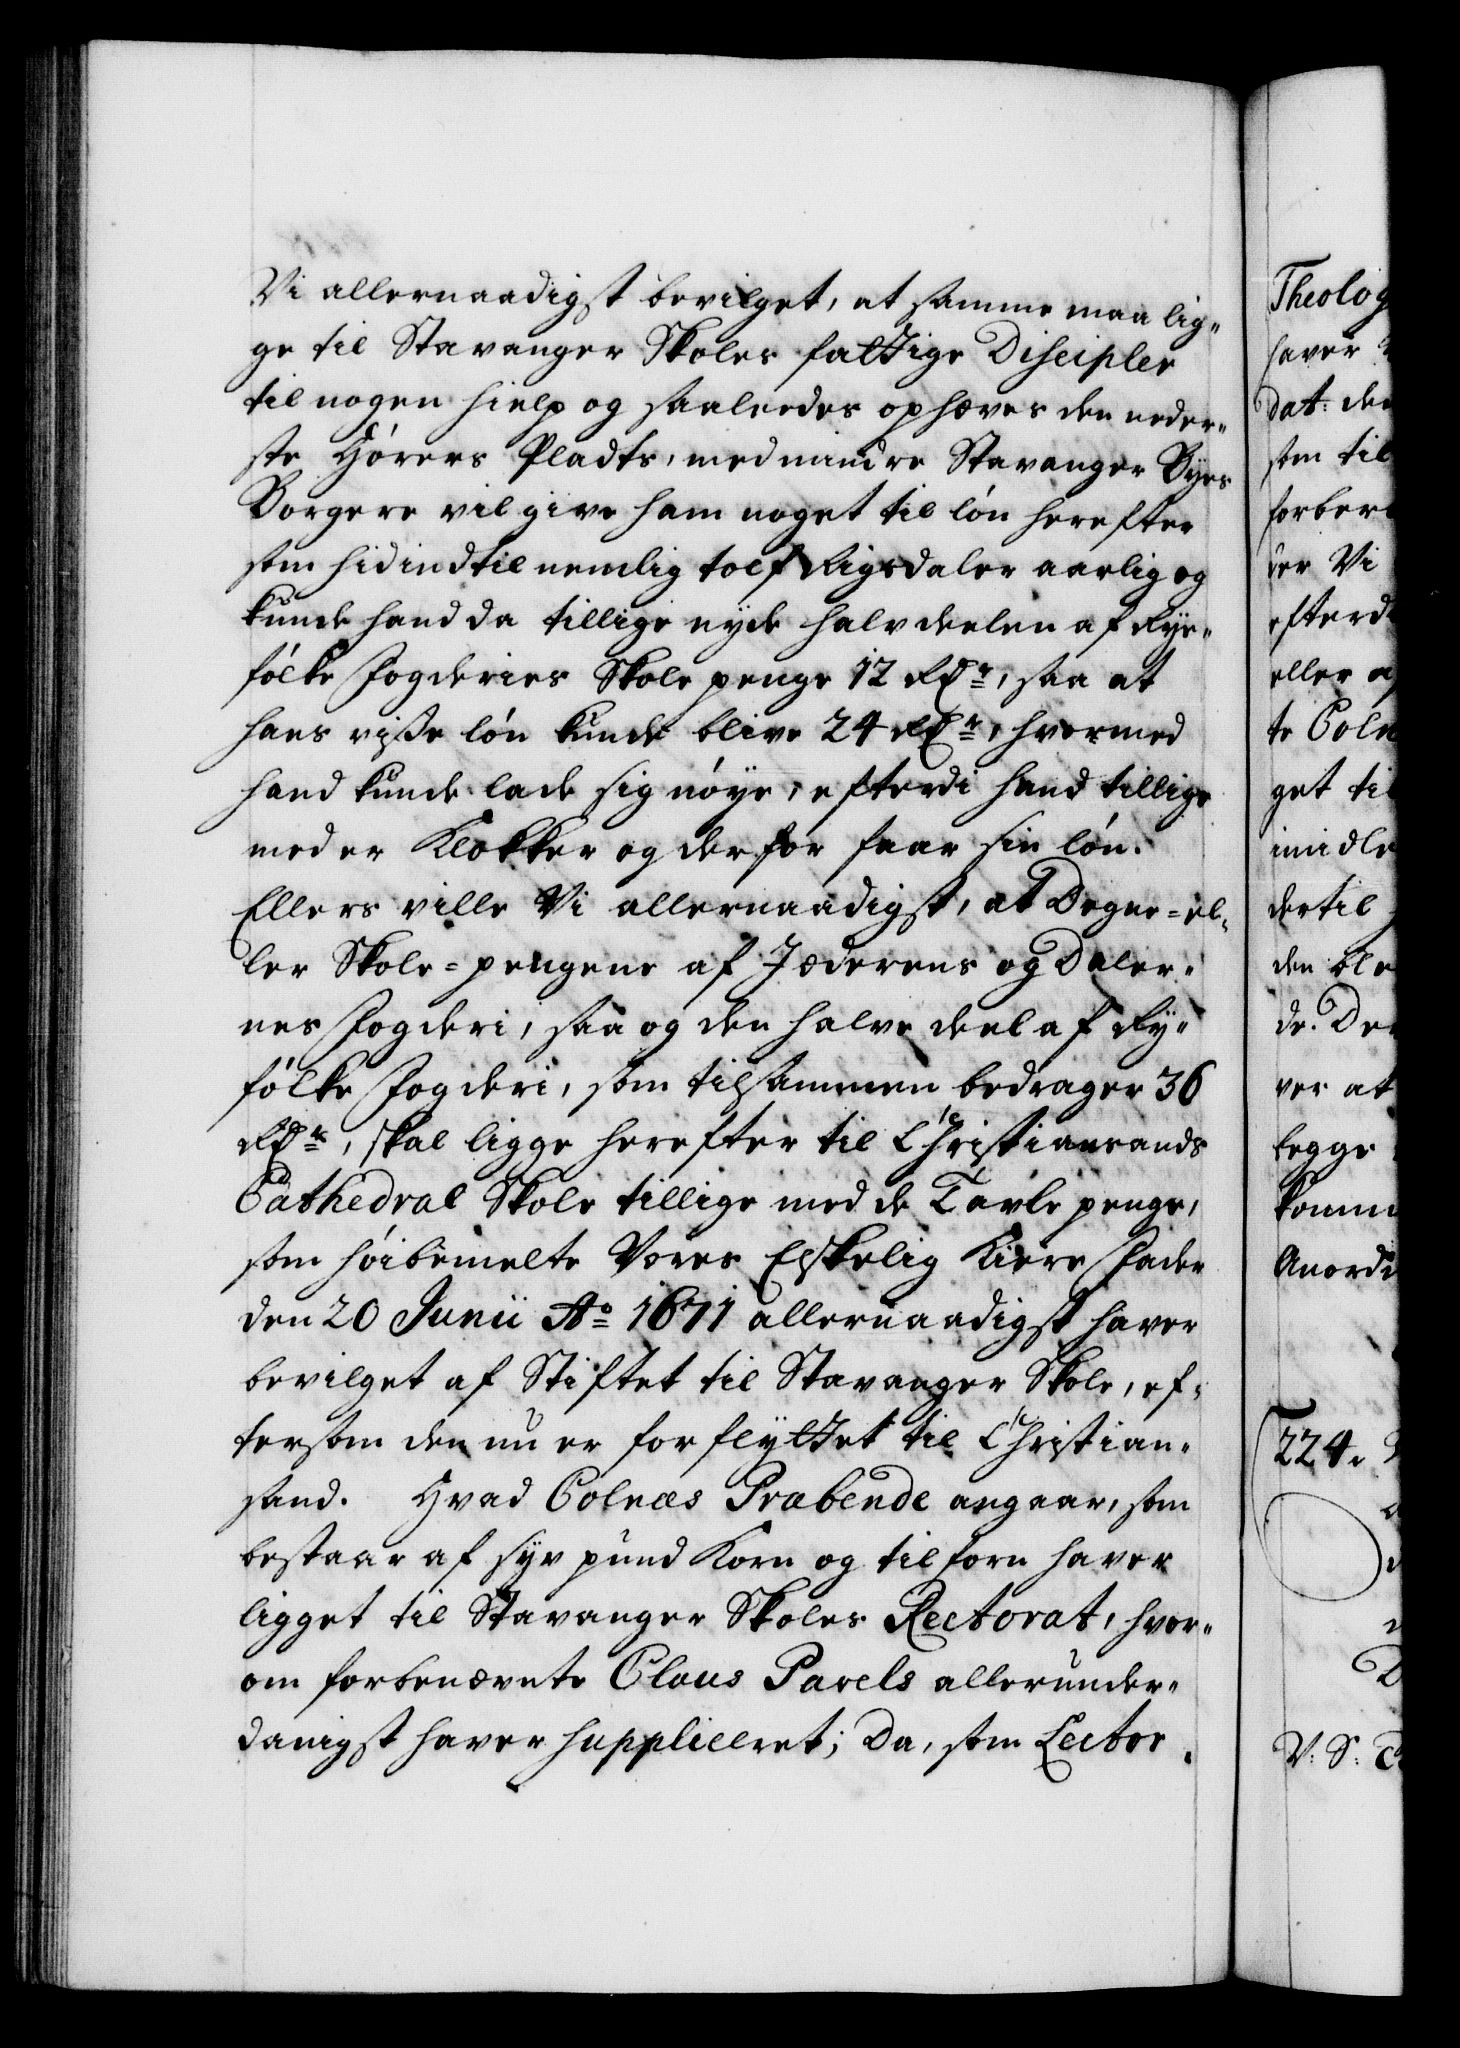 Vi allernaadigst bevilget, at samme maa lig„
ge til Stavanger Skoles fattige Disciple
til nogen hielp og saaledes ophæves den neder„
ste Hörers Pladts, med mindre Stavanger Byes
Borgere vil give ham noget til lön herefter
som hidindtil nemlig tolf Rigsdaler aarlig og
kunde hand da tillige nyde halvdeelen af Rye„
fölke Fogderies Skole penge 12 Rdr, saa at
hans visse lön kunde blive 24 Rdr, hvormed
hand kunde lade sig nöye, efterdi hand tillige
med er Klokker og derfor faar sin lön.
Ellers ville Vi allernaadigst, at Degne=el„
ler Skole=pengene af Jæderens og Daler„
nes Fogderi, saa og den halve deel af Ry„
fölke Fogderi, som tilsammen bedrager 36
Rdr, skal ligge herefter til Christiansands
Cathedral Skole tillige med de Tavle penge,
som höibemelte Vores Elskelig Kiere Fader
den 20 Junii Ao 1671 allernaadigst haver
bevilget af Stiftet til Stavanger Skole, ef„
tersom den nu er forflyttet til Christian„
sand. Hvad Colnæs Præbende angaar, som
bestaar af syv pund Korn og tilforn haver
ligget til Stavanger Skoles Rectorat, hvor„
om forbenævnte Claus Pavels allerunder„
danigst haver supplicret; Da, som Lector
Theolog
haver
dat: den
som til
forber
der Vi
efterd
eller a
te Coln
get til
imidle
dertil
den ble
de. De
ver at
begge
komm
Anord
224.
V: S: